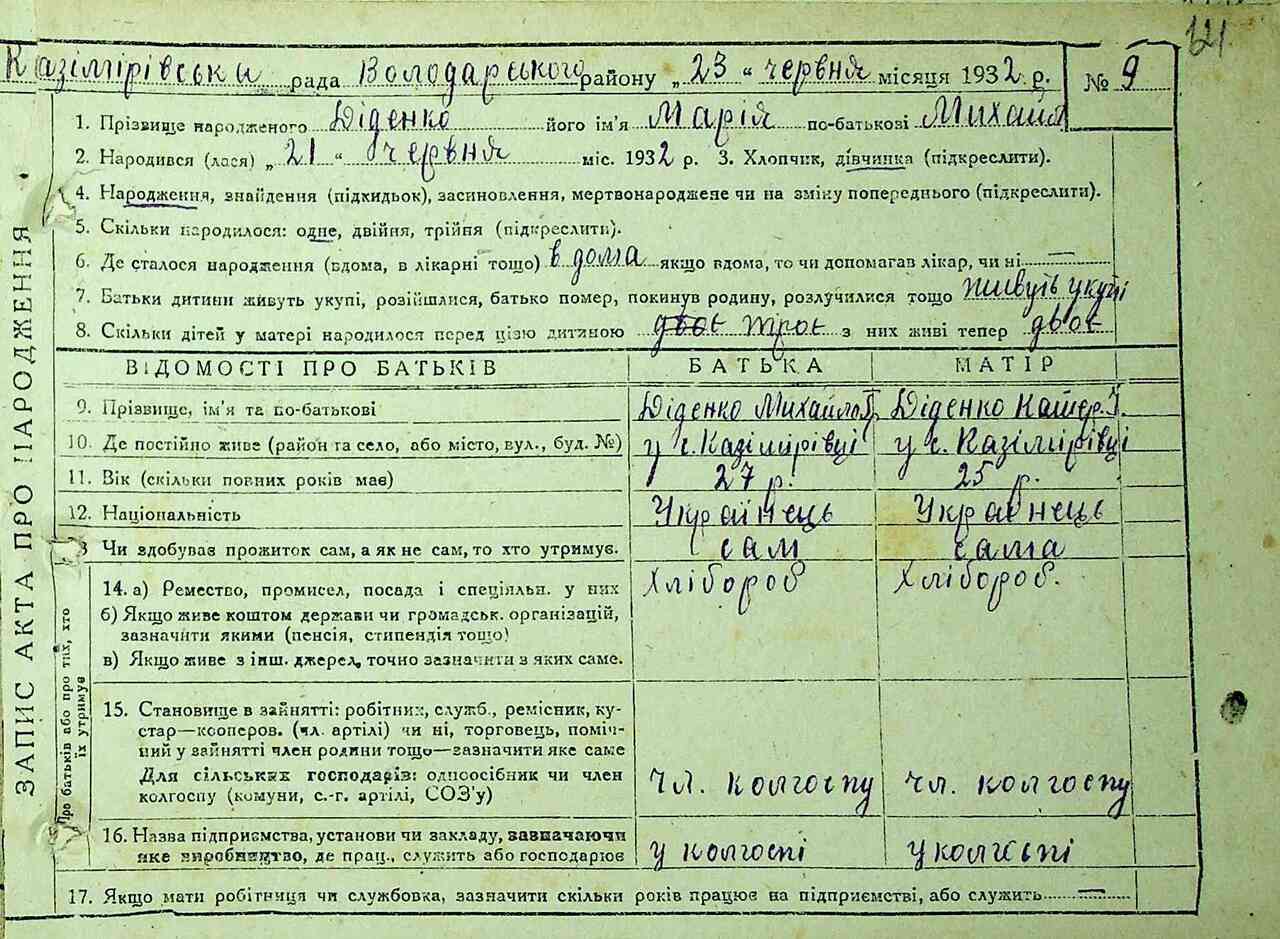 121
Казімірівськи рада Володарського району „23“ червня місяця 1932 р. № 9
1. Прізвище народженого Діденко його ім'я Марія по-батькові Михайл
2. Народився (лася) „21“ червня міс. 1932 р. 3. Хлопчик, дівчинка (підкреслити).
4. Народження, знайдення (підкидьок), засиновлення, мертвонароджене чи на зміну попереднього (підкреслити).
5. Скільки народилося: одне, двійня, трійня (підкреслити).
6. Де сталося народження (вдома, в лікарні тощо) в дома якщо вдома, то чи допомагав лікар, чи ні —
7. Батьки дитини живуть укупі, розійшлися, батько помер, покинув родину, розлучилися тощо живуть укупі
8. Скільки дітей у матері народилося перед цією дитиною двоє троє з них живі тепер двоє
ВІДОМОСТІ ПРО БАТЬКІВ БАТЬКА МАТІР
9. Прізвище, ім'я та по-батькові Діденко Михайло Діденко Катер.
10. Де постійно живе (район та село, або місто, вул., буд. №) у с. Казімірівці у с. Казімірівці
11. Вік (скільки повних років має) 27 р. 25 р.
12. Національність Українець Українець
3 Чи здобував прожиток сам, а як не сам, то хто утримує. сам сама
14. а) Ремество, промисел, посада і спеціяльн. у них Хлібороб Хлібороб.
б) Якщо живе коштом держави чи громадськ. організацій,
зазначити якими (пенсія, стипендія тощо)
в) Якщо живе з інш. джерел, точно зазначити з яких саме.
15. Становище в зайнятті: робітник, служб., ремісник, ку-
стар—кооперов. (чл. артілі) чи ні, торговець, поміч-
ний у зайнятті член родини тощо—зазначити яке саме
Для сільських господарів: одноосібник чи член
колгоспу (комуни, с.-г. артілі, СОЗ'у) чл. колгоспу чл. колгоспу
16. Назва підприємства, установи чи закладу, зазначаючи
яке виробництво, де прац., служить або господарює у колгоспі у колгоспі
17. Якщо мати робітниця чи службовка, зазначити скільки років працює на підприємстві, або служить —
ЗАПИС АКТА ПРО НАРОДЖЕННЯ
Про батьків або про тих, хто
їх утримує